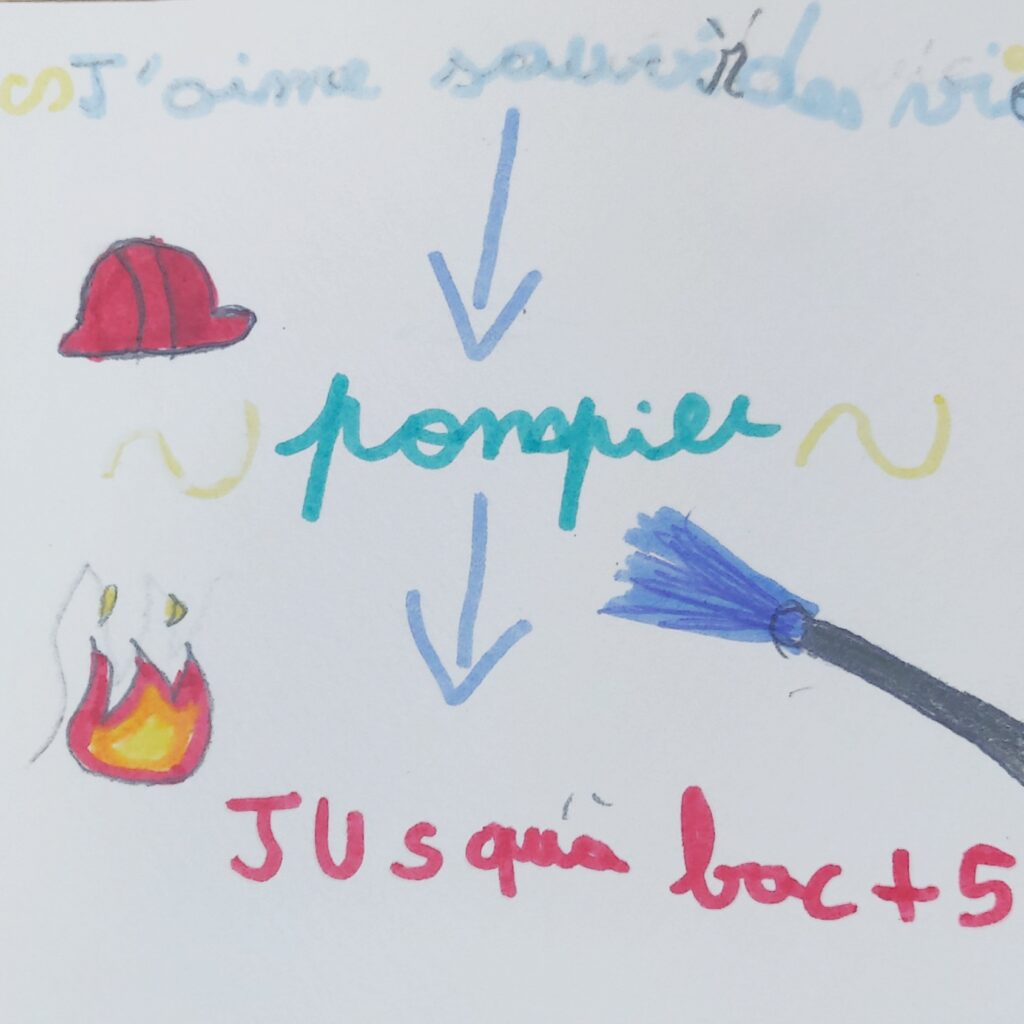 J'aime sauvér des vie
pompier
JUsqu'à bac+5